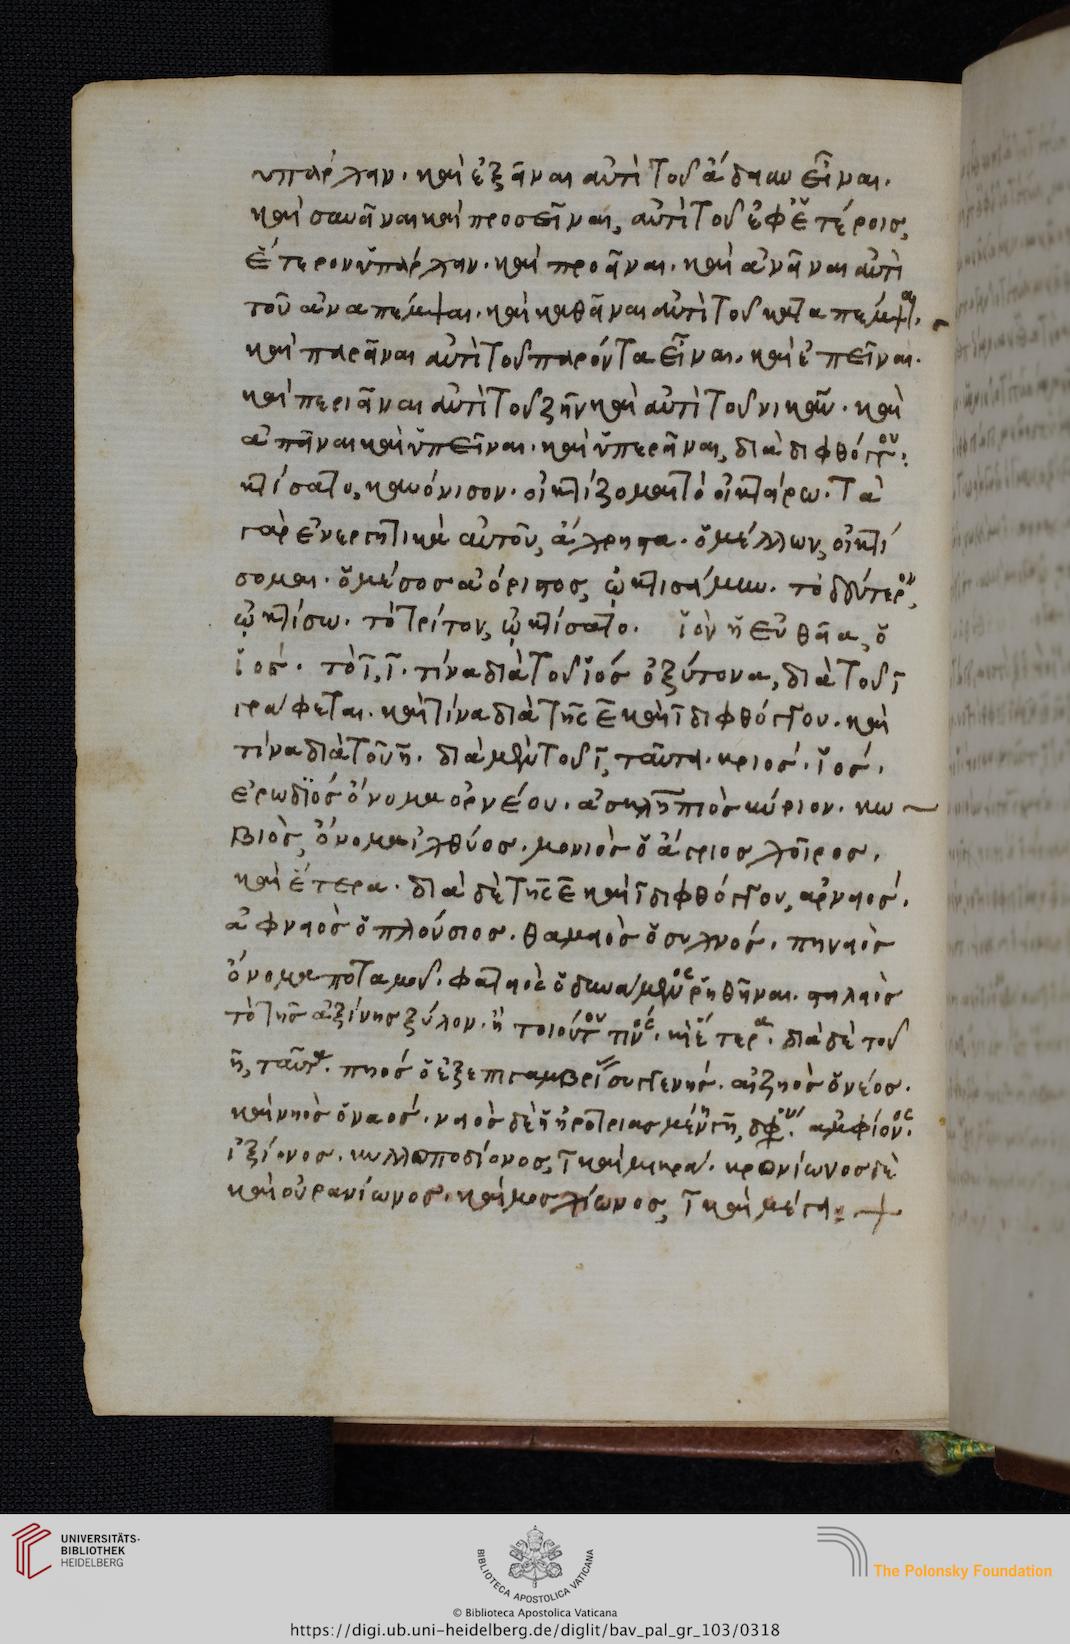 ὑπάρχειν. καὶ ἐξεῖναι ἀντὶ τοῦ ἄδειαν εἶναι.
καὶ συνεῖναι καὶ προσεῖναι, ἀντὶ τοῦ ἐφ' ἑτέροις
ἕτερον ὑπάρχειν. καὶ προεῖναι. καὶ ἀνεῖναι ἀντὶ
τοῦ ἀναπέμψαι. καὶ καθεῖναι ἀντὶ τοῦ καταπέμψαι.
καὶ παρεῖναι ἀντὶ τοῦ παρόντα εἶναι. καὶ ἐπεῖναι.
καὶ περιεῖναι ἀντὶ τοῦ ζῆν καὶ ἀντὶ τοῦ νικᾶν. καὶ
ἀπεῖναι καὶ ὑπεῖναι. καὶ ὑπερεῖναι, διὰ διφθόγγου:
κτίσατο, κανόνισον. οἰκτίζομαι τὸ οἰκτείρω. τὰ
γὰρ ἐνεργητικὰ αὐτοῦ, ἄχρηστα. ὁ μέλλων, οἰκτί
σομαι. ὁ μέσος ἀόριστος, ᾠκτισάμην. τὸ δεύτερον,
ᾠκτίσω. τὸ τρίτον, ᾠκτίσατο. ἰὸν ἡ εὐθεῖα, ὁ
ἰός. τὸ ῑ, ῑ. τίνα διὰ τοῦ ἰός ὀξύτονα, διὰ τοῦ ῑ
γράφεται. καὶ τίνα διὰ τῆς ε̄ καὶ ῑ διφθόγγου. καὶ
τίνα διὰ τοῦ η̄. διὰ μὲν τοῦ ῑ, ταῦτα. κριός. ἰός.
ἐρωδϊός ὄνομα ὀρνέου. ἀσκληπιὸς κύριον. κω
βιὸς, ὄνομα ἰχθύος. μονιὸς ὁ ἄγριος χοῖρος.
καὶ ἕτερα. διὰ δὲ τῆς ε̄ καὶ ῑ διφθόγγου, ἀρνειός.
ἀφνειὸς ὁ πλούσιος. θαμειὸς ὁ συχνός. πηνειὸς
ὄνομα ποταμοῦ. φατειὸς ὁ δυνάμενος ῥηθῆναι. στειλειὸς
τὸ τῆς ἀξίνης ξύλον. ἢ τοιούτου τινός. καὶ ἕτερα. διὰ δὲ τοῦ
η̄, ταῦτα. πηός ὁ ἐξ ἐπιγαμβρί συγγενής. αἰζηὸς ὁ νέος.
καὶ νηὸς ὁ ναός.
ἰξίονος. κυλλοποδίονος, ῑ καὶ μικρά. κρονίωνος δὲ
καὶ οὐρανίωνος. καὶ μοσχίωνος, ῑ καὶ μέγα:
UNIVERSITÄTS-
BIBLIOTHEK
HEIDELBERG
BIBLIOTECA APOSTOLICA VATICANA
The Polonsky Foundation
© Biblioteca Apostolica Vaticana
https://digi.ub.uni-heidelberg.de/diglit/bav_pal_gr_103/0318